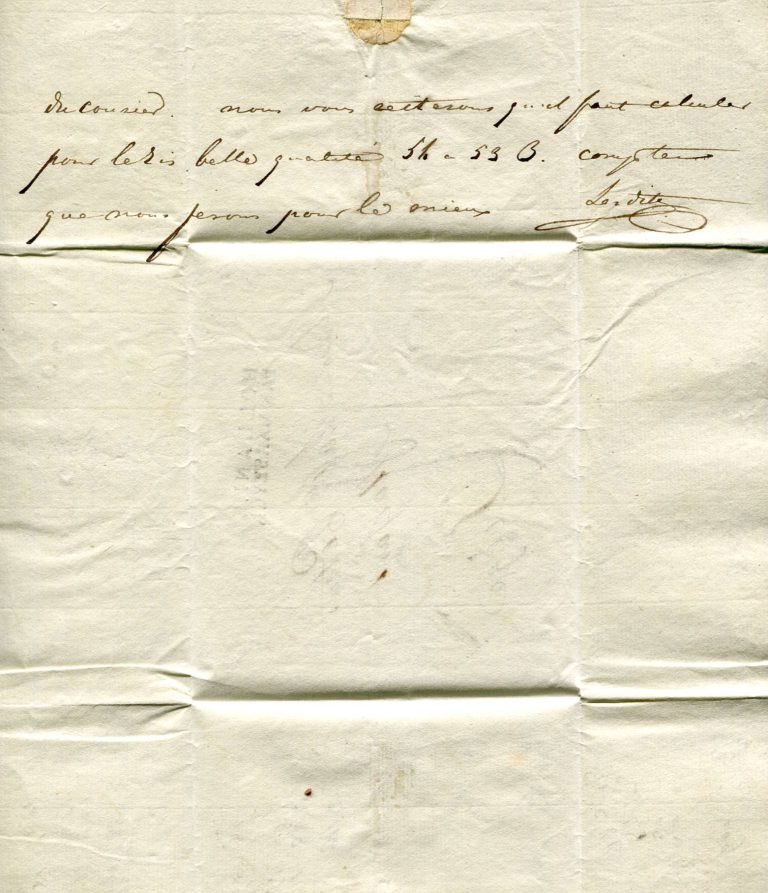 du courier. nous vous réiterons qu'il faut calculer
pour le ris belle qualité 51 a 53 B. comptez
que nous ferons pour le mieux Les dits